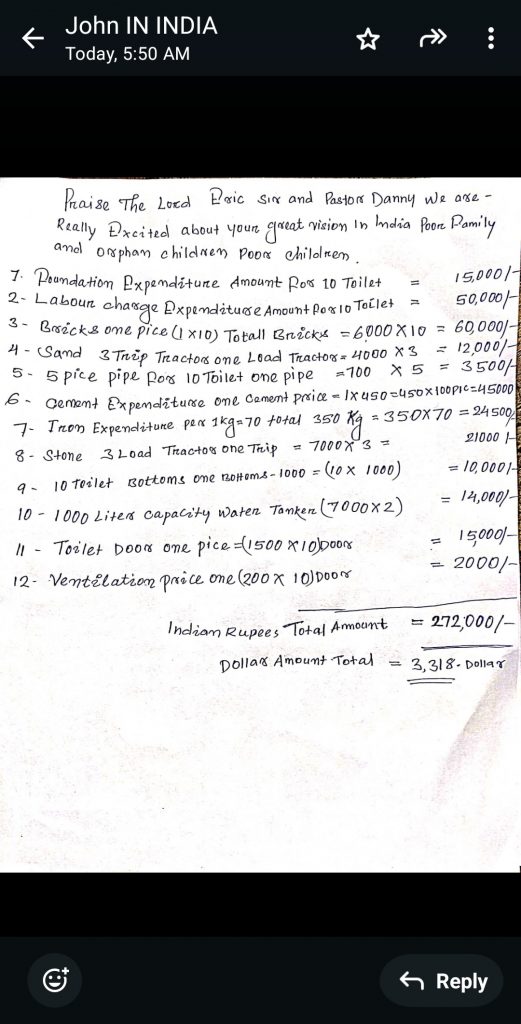 John IN INDIA
Today, 5:50 AM
Praise The Lord Eric Sir and Pastor Danny We are -
Really Excited about your great vision In India Poor Family
and orphan children Poor children.
1- Foundation Expenditure Amount For 10 Toilet = 15,000/-
2- Labour charge Expenditure Amount For 10 Toilet = 50,000/-
3- Bricks one pice (1x10) Totall Bricks = 6000 X 10 = 60,000/-
4- Sand 3 Trip Tractor one Load Tractor = 4000 X 3 = 12,000/-
5- 5 pice pipe For 10 Toilet one pipe = 700 X 5 = 3500/-
6- Cement Expenditure one Cement price = 1X450=450X100PIC=45000
7- Iron Expenditure per 1kg=70 total 350 Kg = 350X70 = 24500/-
8- Stone 3 Load Tractor one Trip = 7000X 3 = 21000 /-
9- 10 Toilet Bottoms one Bottoms-1000 = (10 X 1000) = 10,000/-
10 - 1000 Liter Capacity Water Tanker (7000X2) = 14,000/-
11 - Toilet Door one pice =(1500 X 10)Door = 15000/-
12- Ventilation price one (200 X 10)Door = 2000/-
Indian Rupees Total Amount = 272,000/-
Dollar Amount Total = 3,318. Dollar
Reply